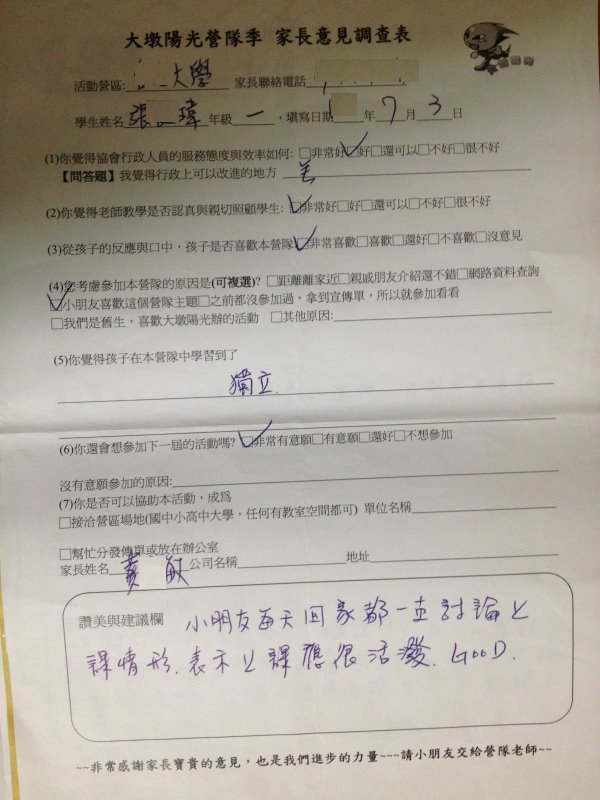 大墩陽光營隊季 家長意見調查表
活動營區: 大學 家長聯絡電話
學生姓名 張 瑋 年級 一 ,填寫日期 年 7 月 3 日
(1)你覺得協會行政人員的服務態度與效率如何: □非常好□好□還可以□不好□很不好
【問答題】我覺得行政上可以改進的地方
(2)你覺得老師教學是否認真與親切照顧學生: □非常好□好□還可以□不好□很不好
(3)從孩子的反應與口中，孩子是否喜歡本營隊□非常喜歡□喜歡□還好□不喜歡□沒意見
(4)您考慮參加本營隊的原因是(可複選)? □距離離家近□親戚朋友介紹還不錯□網路資料查詢
□小朋友喜歡這個營隊主題□之前都沒參加過，拿到宣傳單，所以就參加看看
□我們是舊生，喜歡大墩陽光辦的活動 □其他原因:
(5)你覺得孩子在本營隊中學習到了
獨立.
(6)你還會想參加下一屆的活動嗎? □非常有意願□有意願□還好□不想參加
沒有意願參加的原因:
(7)你是否可以協助本活動，成為
□接洽營區場地(國中小高中大學，任何有教室空間都可) 單位名稱
□幫忙分發傳單或放在辦公室
家長姓名 黃 敏 公司名稱 地址
讚美與建議欄 小朋友每天回家都一直討論上
課情形.表示上課應很活潑. GOOD.
~~非常感謝家長寶貴的意見，也是我們進步的力量~~~請小朋友交給營隊老師~~